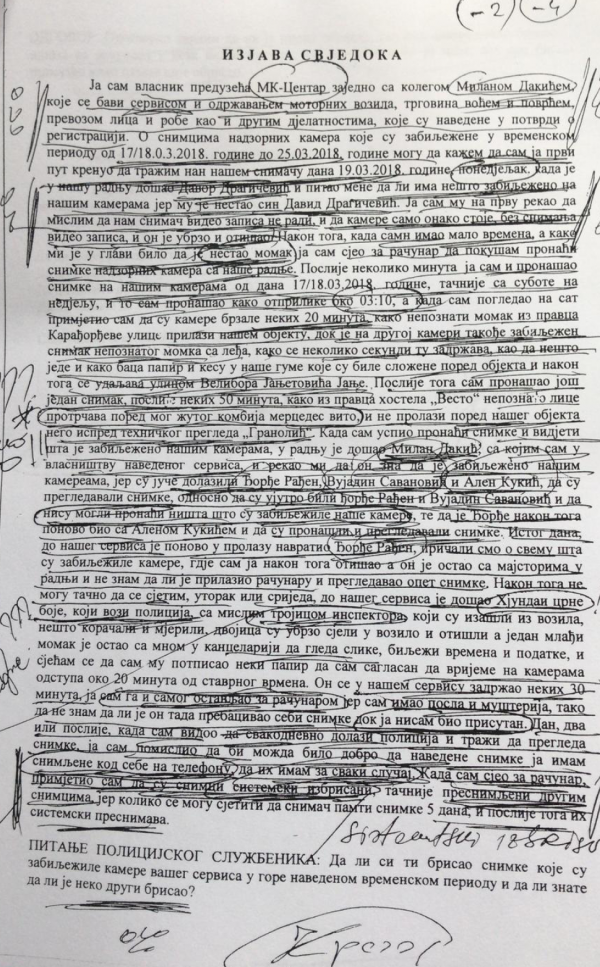 (-2) (-4)
ИЗЈАВА СВЈЕДОКА
Ја сам власник предузећа МК-Центар заједно са колегом Миланом Дакићем,
које се бави сервисом и одржавањем моторних возила, трговина воћем и поврћем,
превозом лица и робе као и другим дјелатностима, које су наведене у потврди о
регистрацији. О снимцима надзорних камера које су забиљежене у временском
периоду од 17/18.0.3.2018. године до 25.03.2018, године могу да кажем да сам ја први
пут кренуо да тражим нан нашем снимачу дана 19.03.2018. године, понедјељак, када је
у нашу радњу дошао Давор Драгичевић и питао мене да ли има нешто забиљежено на
нашим камерама јер му је нестао син Давид Драгичевић. Ја сам му на прву рекао да
мислим да нам снимач видео записа не ради, и да камере само онако стоје, без снимања
видео записа, и он је убрзо и отишао. Након тога, када самн имао мало времена, а како
ми је у глави било да је нестао момак ја сам сјео за рачунар да покушам пронаћи
снимке надзорних камера са наше радње. Послије неколико минута ја сам и пронашао
снимке на нашим камерама од дана 17/18.03.2018. године, тачније са суботе на
недјељу, и то сам пронашао како отприлике око 03:10, а када сам погледао на сат
примјетио сам да су камере брзале неких 20 минута, како непознати момак из правца
Карађорђеве улице прилази нашем објекту, док је на другој камери такође забиљежен
снимак непознатог момка са леђа, како се неколико секунди ту задржава, као да нешто
једе и како баца папир и кесу у наше гуме које су биле сложене поред објекта и након
тога се удаљава улицом Велибора Јањетовића Јање. Послије тога сам пронашао још
један снимак, послије неких 50 минута, како из правца хостела „Весто" непознато лице
протрчава поред мог жутог комбија мерцедес вито, и не пролази поред нашег објекта
него испред техничког прегледа „Гранолић". Када сам успио пронаћи снимке и видјети
шта је забиљежено нашим камерама, у радњу је дошао Милан Дакић, са којим сам у
власништву наведеног сервиса, и рекао ми да он зна да је забиљежено нашим
камереама, јер су јуче долазили Ђорђе Рађен, Вујадин Савановић и Ален Кукић, да су
прегледавали снимке, односно да су ујутро били ђорђе Рађен и Вујадин Савановић и да
нису могли пронаћи ништа што су забиљежиле наше камере, те да је Ђорђе након тога
поново био са Аленом Кукићем и да су пронашли и прегледавали снимке. Истог дана,
до нашег сервиса је поново у пролазу навратио Ђорђе Рађен, причали смо о свему шта
су забиљежиле камере, гдје сам ја након тога отишао а он је остао са мајсторима у
радњи и не знам да ли је прилазио рачунару и прегледавао опет снимке. Након тога не
могу тачно да се сјетим, уторак или сриједа, до нашег сервиса је дошао Хјундаи црне
боје, који вози полиција, са мислим тројицом инспектора, који су изашли из возила,
нешто корачали и мјерили, двојица су убрзо сјели у возило и отишли а један млађи
момак је остао са мном у канцеларији да гледа слике, биљежи времена и податке, и
сјећам се да сам му потписао неки папир да сам сагласан да вријеме на камерама
одступа око 20 минута од ставрног врмена. Он се у нашем сервису задржао неких 30
минута, ја сам га и самог остављао за рачунаром јер сам имао посла и муштерија, тако
да не знам да ли је он тада пребацивао себи снимке док ја нисам био присутан. Дан, два
или послије, када сам видоо да свакодневно долази полиција и тражи да прегледа
снимке, ја сам помислио да би можда било добро да наведене снимке ја имам
снимљене код себе на телефону, да их имам за сваки случај. Када сам сјео за рачунар,
примјетио сам да су снимци системски избрисани, тачније преснимљени другим
снимцима, јер колико се могу сјетити да снимач памти снимке 5 дана, и послије тога их
системски преснимава.
ПИТАЊЕ ПОЛИЦИЈСКОГ СЛУЖБЕНИКА: Да ли си ти брисао снимке које су
забиљежиле камере вашег сервиса у горе наведеном временском периоду и да ли знате
да ли је неко други брисао?